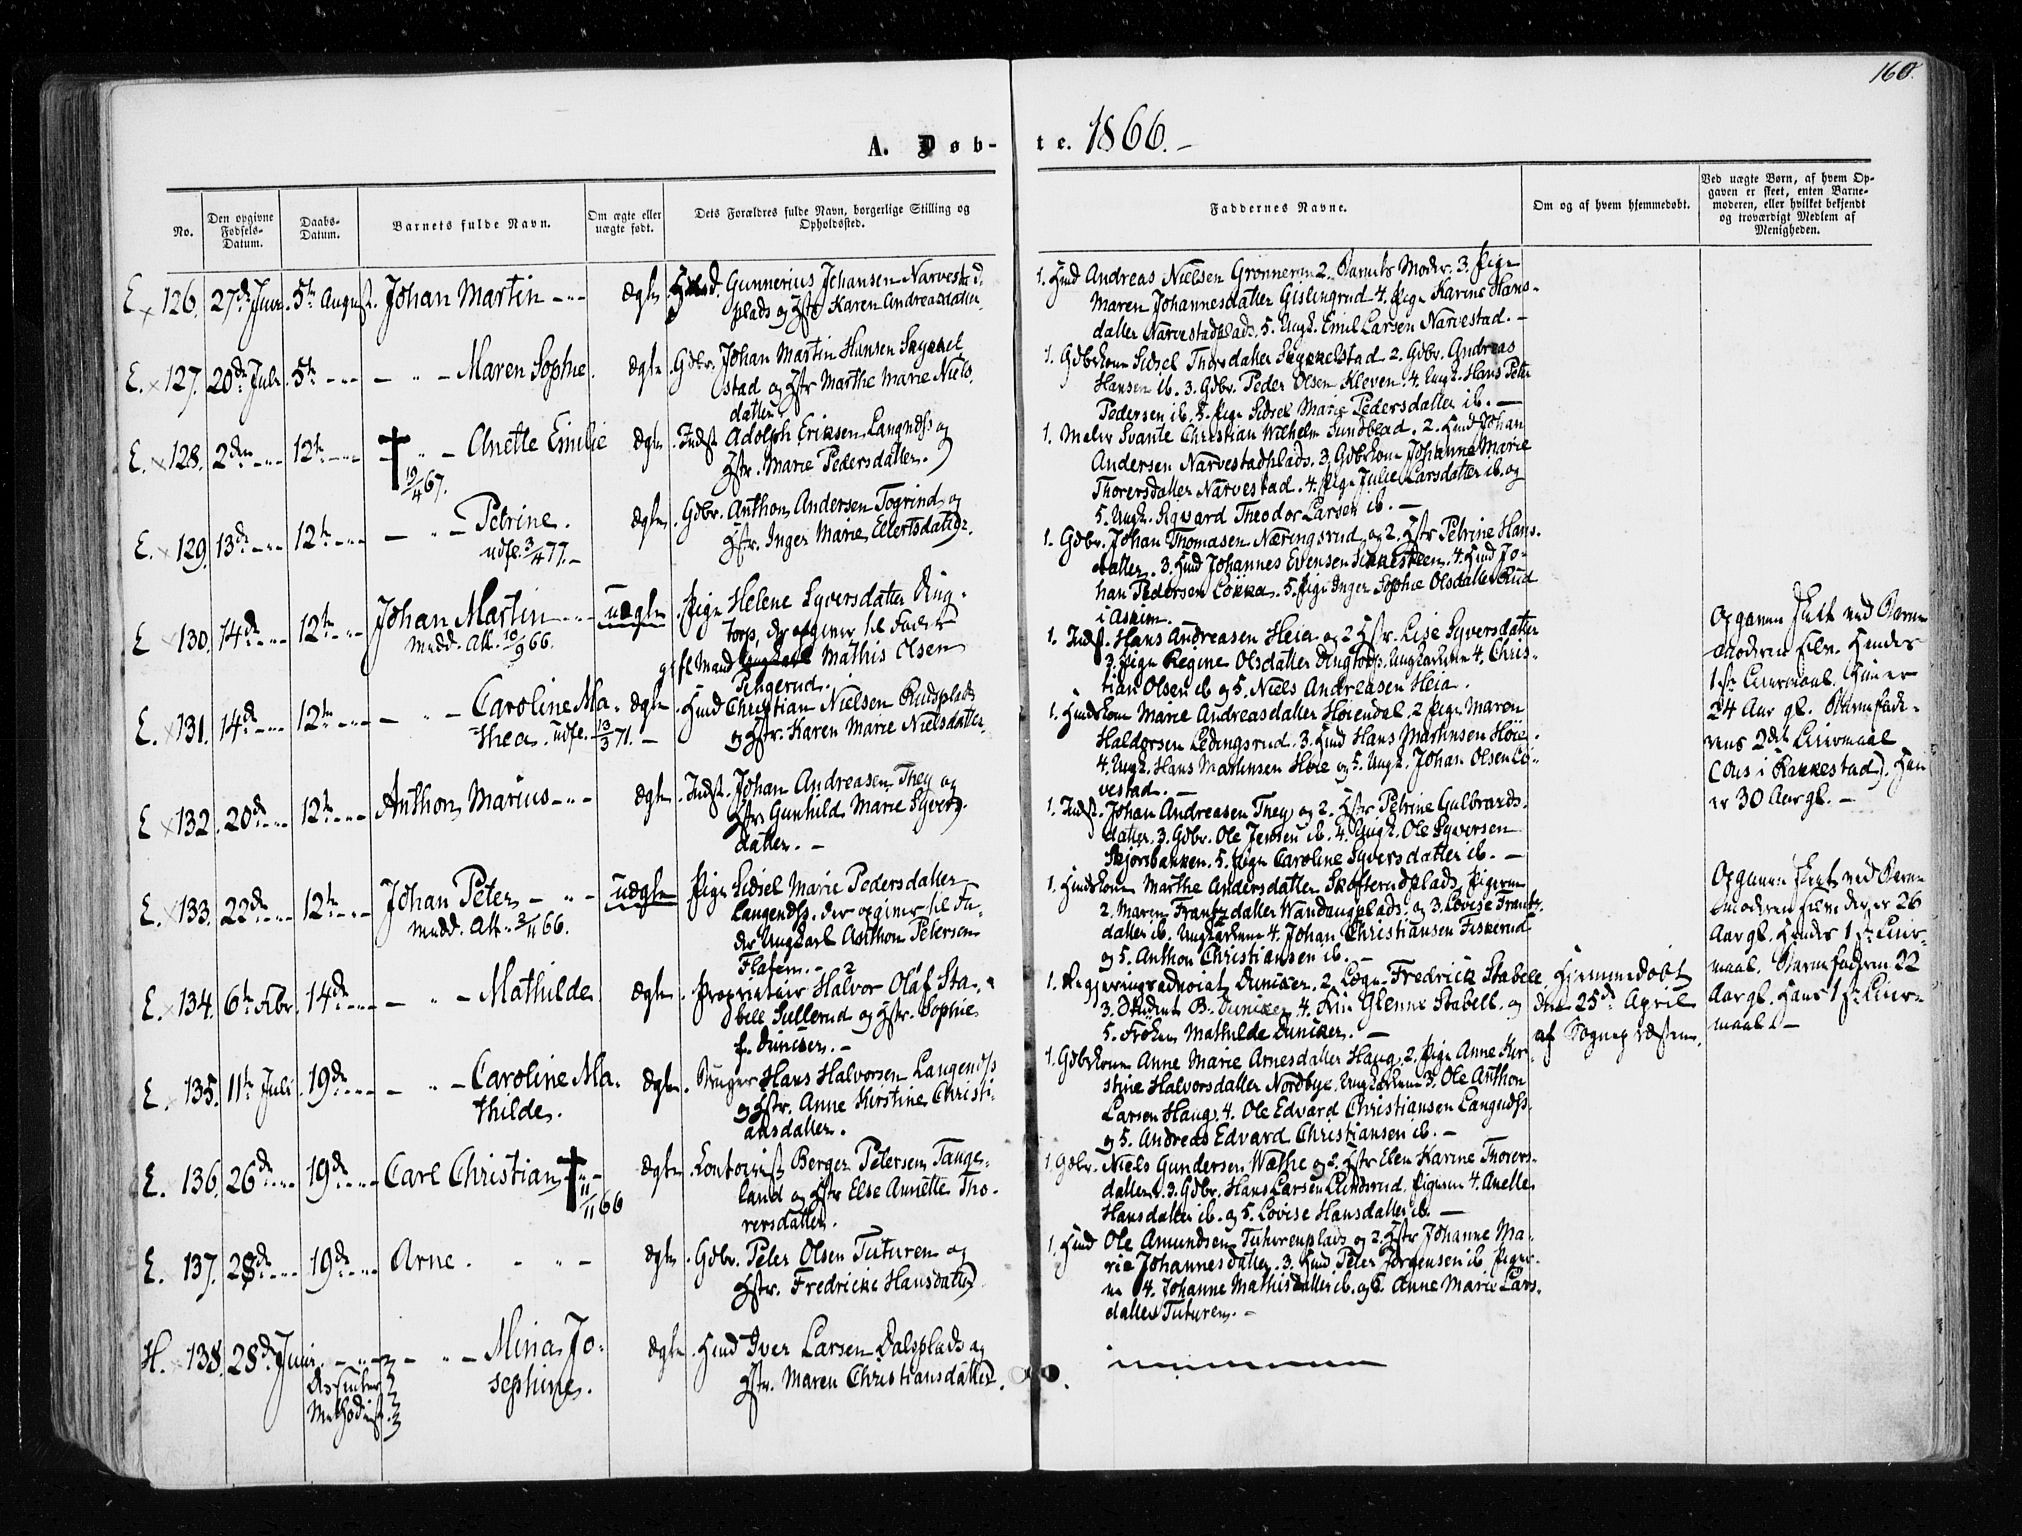 160.
A. Døb-
te. 1866.-
No.
Den opgivne Fødsels-Datum.
Daabs-Datum.
Barnets fulde Navn.
Om ægte eller uægte født.
Dets Forældres fulde Navn, borgerlige Stilling og Opholdssted.
Faddernes Navne.
Om og af hvem hjemmedøbt.
Ved uægte Børn, af hvem Opgaven er skeet, enten Barnemoderen, eller hvilket bekjendt og troværdigt Medlem af Menigheden.
E. 126. 27de Juni. 5te August. Johan Martin Ægte. Gunnerius Johansen Narvestad-
plads og Hstr Karen Andreasdatter.
1. Hmd Andreas Nielsen Grønneren 2. Barnets Moder. 3. Pige
Maren Johannesdatter Gislingrud. 4. Pige Karine Hans-
datter Narvestadplads. 5. Ungk. Emil Larsen Narvestad.
E. 127. 20de Juli. 5te Maren Sophie. Ægte. Gdbr. Johan Martin Hansen Skykkel
stad og Hstr Marthe Marie Niels
datter.
1. Gdbrkone Sidsel Thorsdatter Skykkelstad 2. Gdbr. Andreas
Hansen ib. 3. Gdbr. Peder Olsen Kleven. 4. Ungk. Hans Peter
Pedersen ib. 5. Pige Sidsel Marie Pedersdatter ib.
E. 128. 2den 12te Anette Emilie Ægte. Indst Adolph Eriksen Langnæss og
Hstr. Marie Pedersdatter.
19/4 67.
1. Maler Svante Christian Wilhelm Sundblad. 2. Hmd Johan
Andersen Narvestadplads. 3. Gdbrkone Johanne Marie
Thorersdatter Narvestad. 4. Pige Julie Larsdatter ib. og
5. Ungk. Sigvard Theodor Larsen ib.
E. 129. 13de 12te Petrine. Ægte. Gdbr. Anthon Andersen Togrind og
Hstr. Inger Marie Ellertsdatter.
udfl. 3/4 77.
1. Gdbr. Johan Thomasen Næringsrud og 2. Hstr Petrine Hans-
datter. 3. Hmd Johannes Evensen Sikkesteen. 4. Hmd Jo-
han Pedersen Løkka. 5. Pige Inger Sophie Olsdatter Rud
i Askim.
E. 130. 14de 12te Johan Martin uægte Pige Helene Syversdatter Ding-
torp, der opgiver til Fader
gift Mand Ungkarl Mathis Olsen
Pengerud.
medd. Att. 10/9 66.
1. Indst. Hans Andreasen Heia og 2 Hstr. Lise Syversdatter
3. Pige Regine Olsdatter Dingtorp. Ungkarlene 4. Chris-
tian Olsen ib og 5. Niels Andreasen Heia.
Opgaven skeet ved Barne
moderen selv. Hendes
1ste Leiermaal. Hun er
24 Aar gl. Barnefade-
rens 2det Leiermaal
(Bus i Rakkestad). Han
er 30 Aar gl.
E. 131. 14de 12te Caroline Ma-
thea. udfl. 13/3 71. Ægte. Hmd Christian Nielsen Rudsplads
og Hstr. Karen Marie Nielsdatter.
1. Hmdskone Marie Andreasdatter Høiendal. 2 Pige Maren
Haldorsen Ledingsrud. 3. Hmd Hans Martinsen Høie.
4. Ungk. Hans Martinsen Høie og 5. Ungk. Johan Olsen Lø-
vestad.
E. 132. 20de 12te Anthon Marius Ægte. Indst. Johan Andreasen They og
Hstr. Gunhild Marie Syvers-
datter.
1. Indst. Johan Andreasen They og 2. Hstr. Petrine Gulbrands-
datter. 3. Gdbr. Ole Jensen ib. 4. Ungk. Ole Syversen
Skjørsbakken. 5. Pige Caroline Syversdatter ib.
E. 133. 22de 12te Johan Peter uægte Pige Sidsel Marie Pedersdatter
Langenæss. der opgiver til Fa-
der Ungkarl Anthon Petersen
Flaten.
medd. Att. 2/11 66.
1. Hmdskone Marthe Andersdatter Skofterudplads. Pigerne
2. Maren Frantzdatter Wandangplads. og 3. Lovise Frantz-
datter ib. Ungkarlene 4. Johan Christiansen Fiskerud
og 5. Anthon Christiansen ib.
Opgaven skeet ved Barne
moderen selv der er 26
Aar gl. Hendes 1ste Leier-
maal. Barnefaderen 22
Aar gl. Hans 1ste Leier-
maal.
E. 134. 6te Febr. 14de Mathilde Ægte. Proprietair Halvor Olaf Sta-
bell Sullerud og Hstr. Sophie
f. Duncker.
1. Regjeringsadvocat Duncker. 2. Løgn. Fredrick Stabell.
3. Student B. Duncker. 4. Fru Glenne Stabell. og
5. Frøken Mathilde Duncker.
Hjemmedøbt
den 25de April
af Sognepræsten.
E. 135. 11te Juli. 19de Caroline Ma-
thilde. Ægte. Bruger Hans Halvorsen Langenæss
og Hstr. Anne Kirstine Christi-
ansdatter.
1. Gdbrkone Anne Marie Arnesdatter Haug. 2. Pige Anne Kir-
stine Halvorsdatter Nordbye. Ungkarlene 3. Ole Anthon
Larsen Haug. 4. Ole Edvard Christiansen Langnæss.
og 5. Andreas Edvard Christiansen ib.
E. 136. 26de 19de Carl Christian 11/11 66 Ægte. Contorist Berger Petersen Tange-
land og Hstr Else Annette Tho-
rersdatter.
1. Gdbr. Niels Gundersen Wæthe og 2. Hstr Elen Karine Thorers-
datter. 3. Gdbr. Hans Larsen Lundsrud. Pigerne 4. Anette
Hansdatter ib. og 5. Lovise Hansdatter ib.
E. 137. 28de 19de Arne. Ægte. Gdbr. Peter Olsen Tuturen og
Hstr. Fredricke Hansdatter.
1. Hmd Ole Amundsen Tuturenplads og 2. Hstr Johanne Ma-
rie Johannesdatter. 3. Hmd Peter Jørgensen ib. Piger-
ne 4. Johanne Mathisdatter ib. og 5. Anne Marie Lars-
datter Tuturen.
H. 138. 28de Juni. Mina Jo-
sephine. Ægte. Hmd Iver Larsen Dalsplads og
Hstr. Maren Christiansdatter.
Dissenter
Methodist.